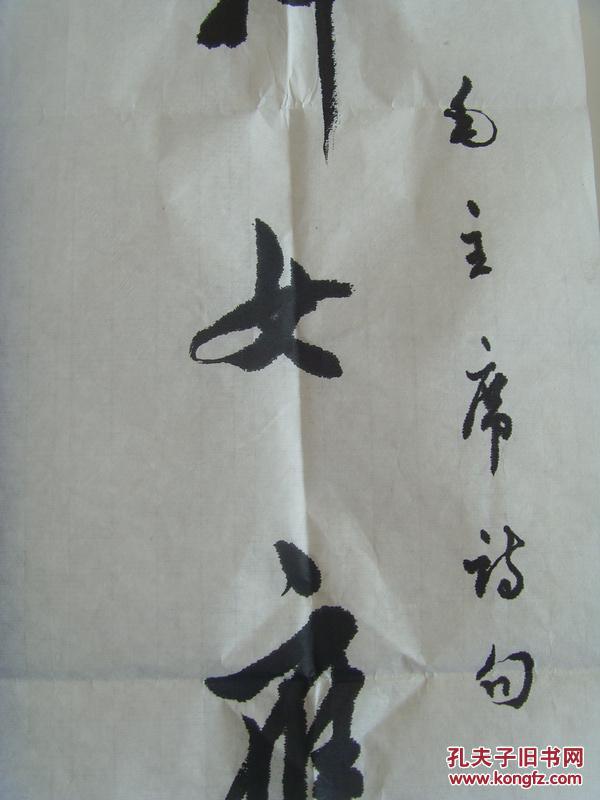 毛主席诗句
神女應
孔夫子旧书网
www.kongfz.com